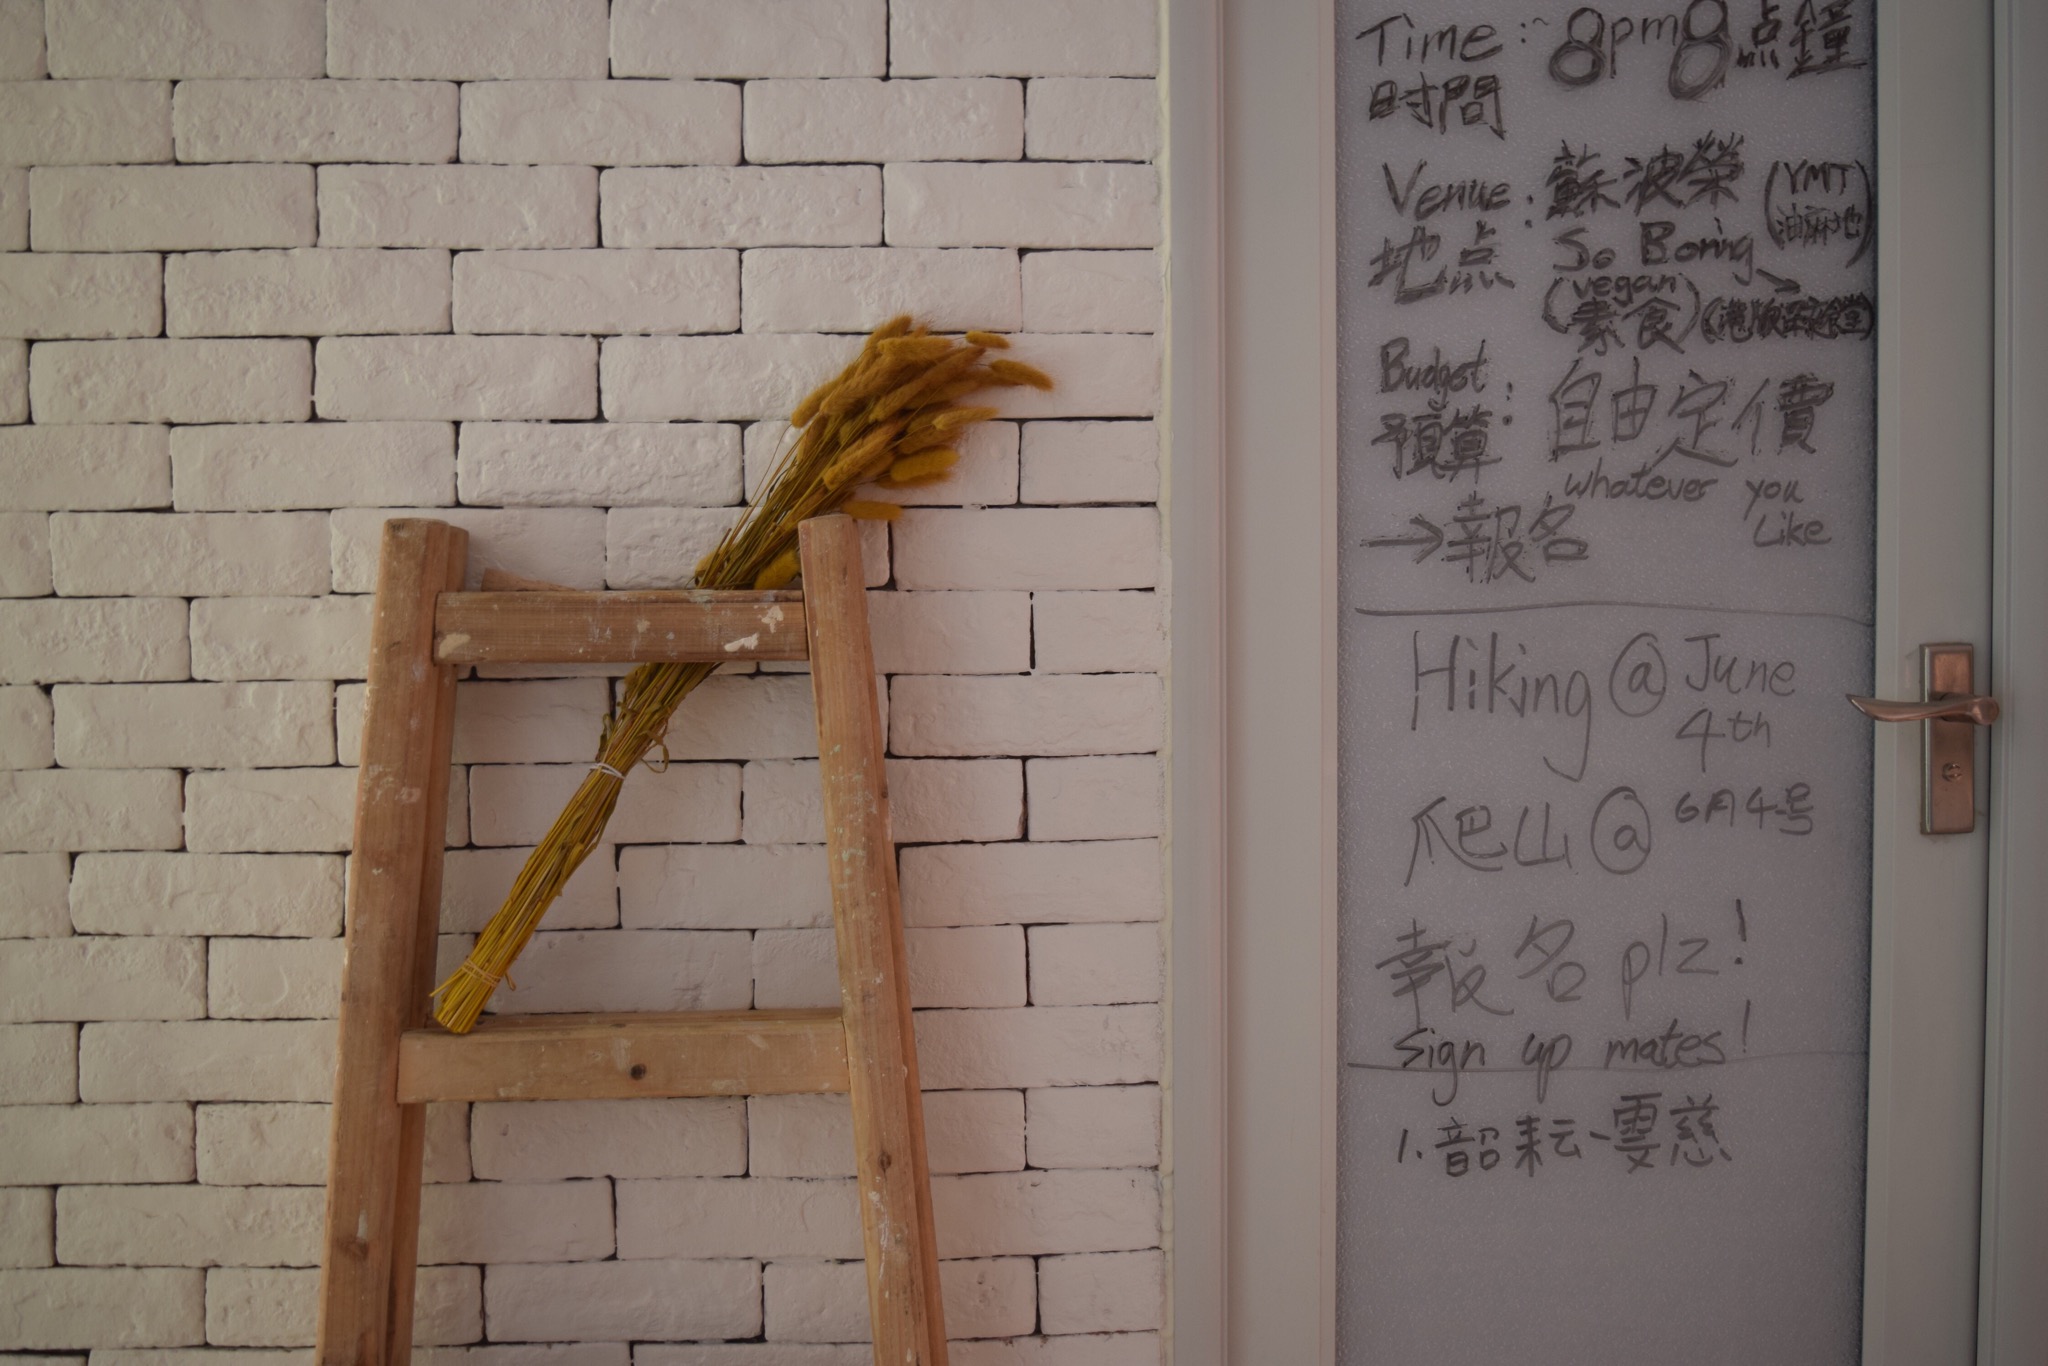 Time: 8pm 8点鐘
时間
Venue: 蘇波榮 (YMT
地点 油麻地)
So Boring
(vegan
素食)
Budget
預算: 自由定價
whatever you
Like
→報名
Hiking @ June
4th
爬山 @ 6月4号
報名 plz!
Sign up mates!
1. 韶耘、雯慈